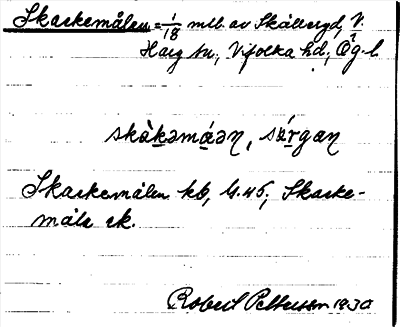 Skackemålen = 1/18 mtl. av Skällvyd, V.
Harg sn., Vifolka hd., Ög. l.
skàkəmɑ́ən, sɑ́rgan
Skackemålen kb, G. 45; Skacke-
måla ek.
Robert Pettersson 1930